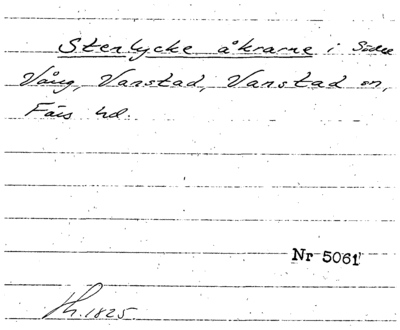 Stenlycke åkrarne i Södra
Vång, Vanstad, Vanstad sn,
Färs hd.
Nr 5061
1825.